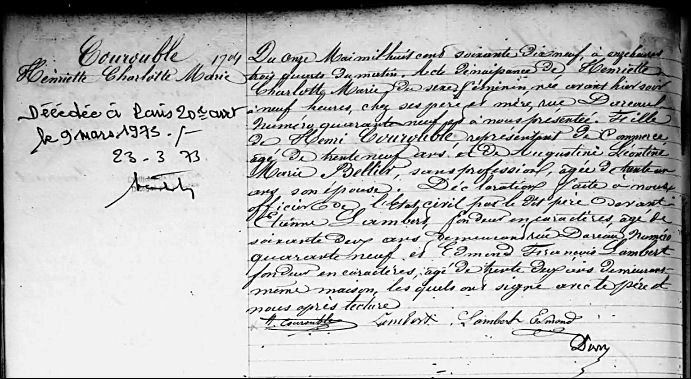 Courouble 1704
Henriette Charlotte Marie
Décédée à Paris 20e art
le 9 mars 1973 ./
23-3 73
Du onze Mai mil huit cent soixante dix neuf, à onze heures
trois quarts du matin. Acte de naissance de Henriette
Charlotte Marie du sexe féminin, née avant hier soir
à neuf heures, chez ses père et mère, rue Dareau,
numéro quarante neuf, et à nous présentée, fille
de Henri Courouble représentant de Commerce
âgé de trente neuf ans, et de Augustine Léontine
Marie Bellier, sans profession, âgée de trente un
ans, son épouse. Déclaration faite à nous
officier de l'Etat civil par le dit père devant
Etienne Lambert fondeur en caractères, âgé de
soixante deux ans demeurant rue Dareau numéro
quarante neuf et Edmond François Lambert
fondeur en caractères, âgé de trente deux ans demeurant
même maison, lesquels ont signé avec le père et
nous après lecture
H. Courouble Lambert Lambert Edmond